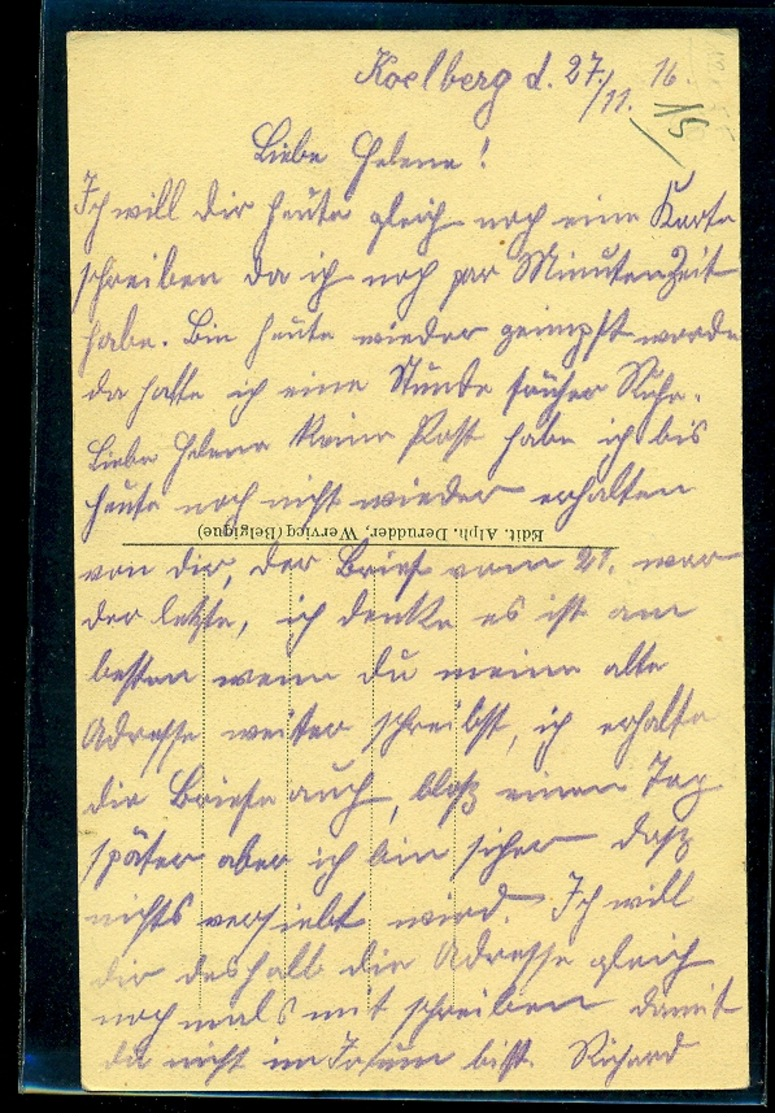 Koelberg d. 27./11. 16.
15
Liebe Helene!
Ich will dir heute gleich noch eine Karte
schreiben da ich noch par Minuten Zeit
habe. Bin heute wieder geimpft worde
da hatte ich eine Stunde früher Ruhe.
Liebe Helene keine Post habe ich bis
heute noch nicht wieder erhalten
Edit. Alph. Derudder, Wervicq (Belgique)
von dir, der Brief vom 21. war
der letzte, ich denke es ist am
besten wenn du meine alte
Adresse weiter schreibst, ich erhalte
die Briefe auch, bloß einen Tag
später aber ich bin sicher daß
nichts versiebt wird. Ich will
dir deshalb die Adresse gleich
noch mals mit schreiben damit
du nicht im Irtum bist. Richard